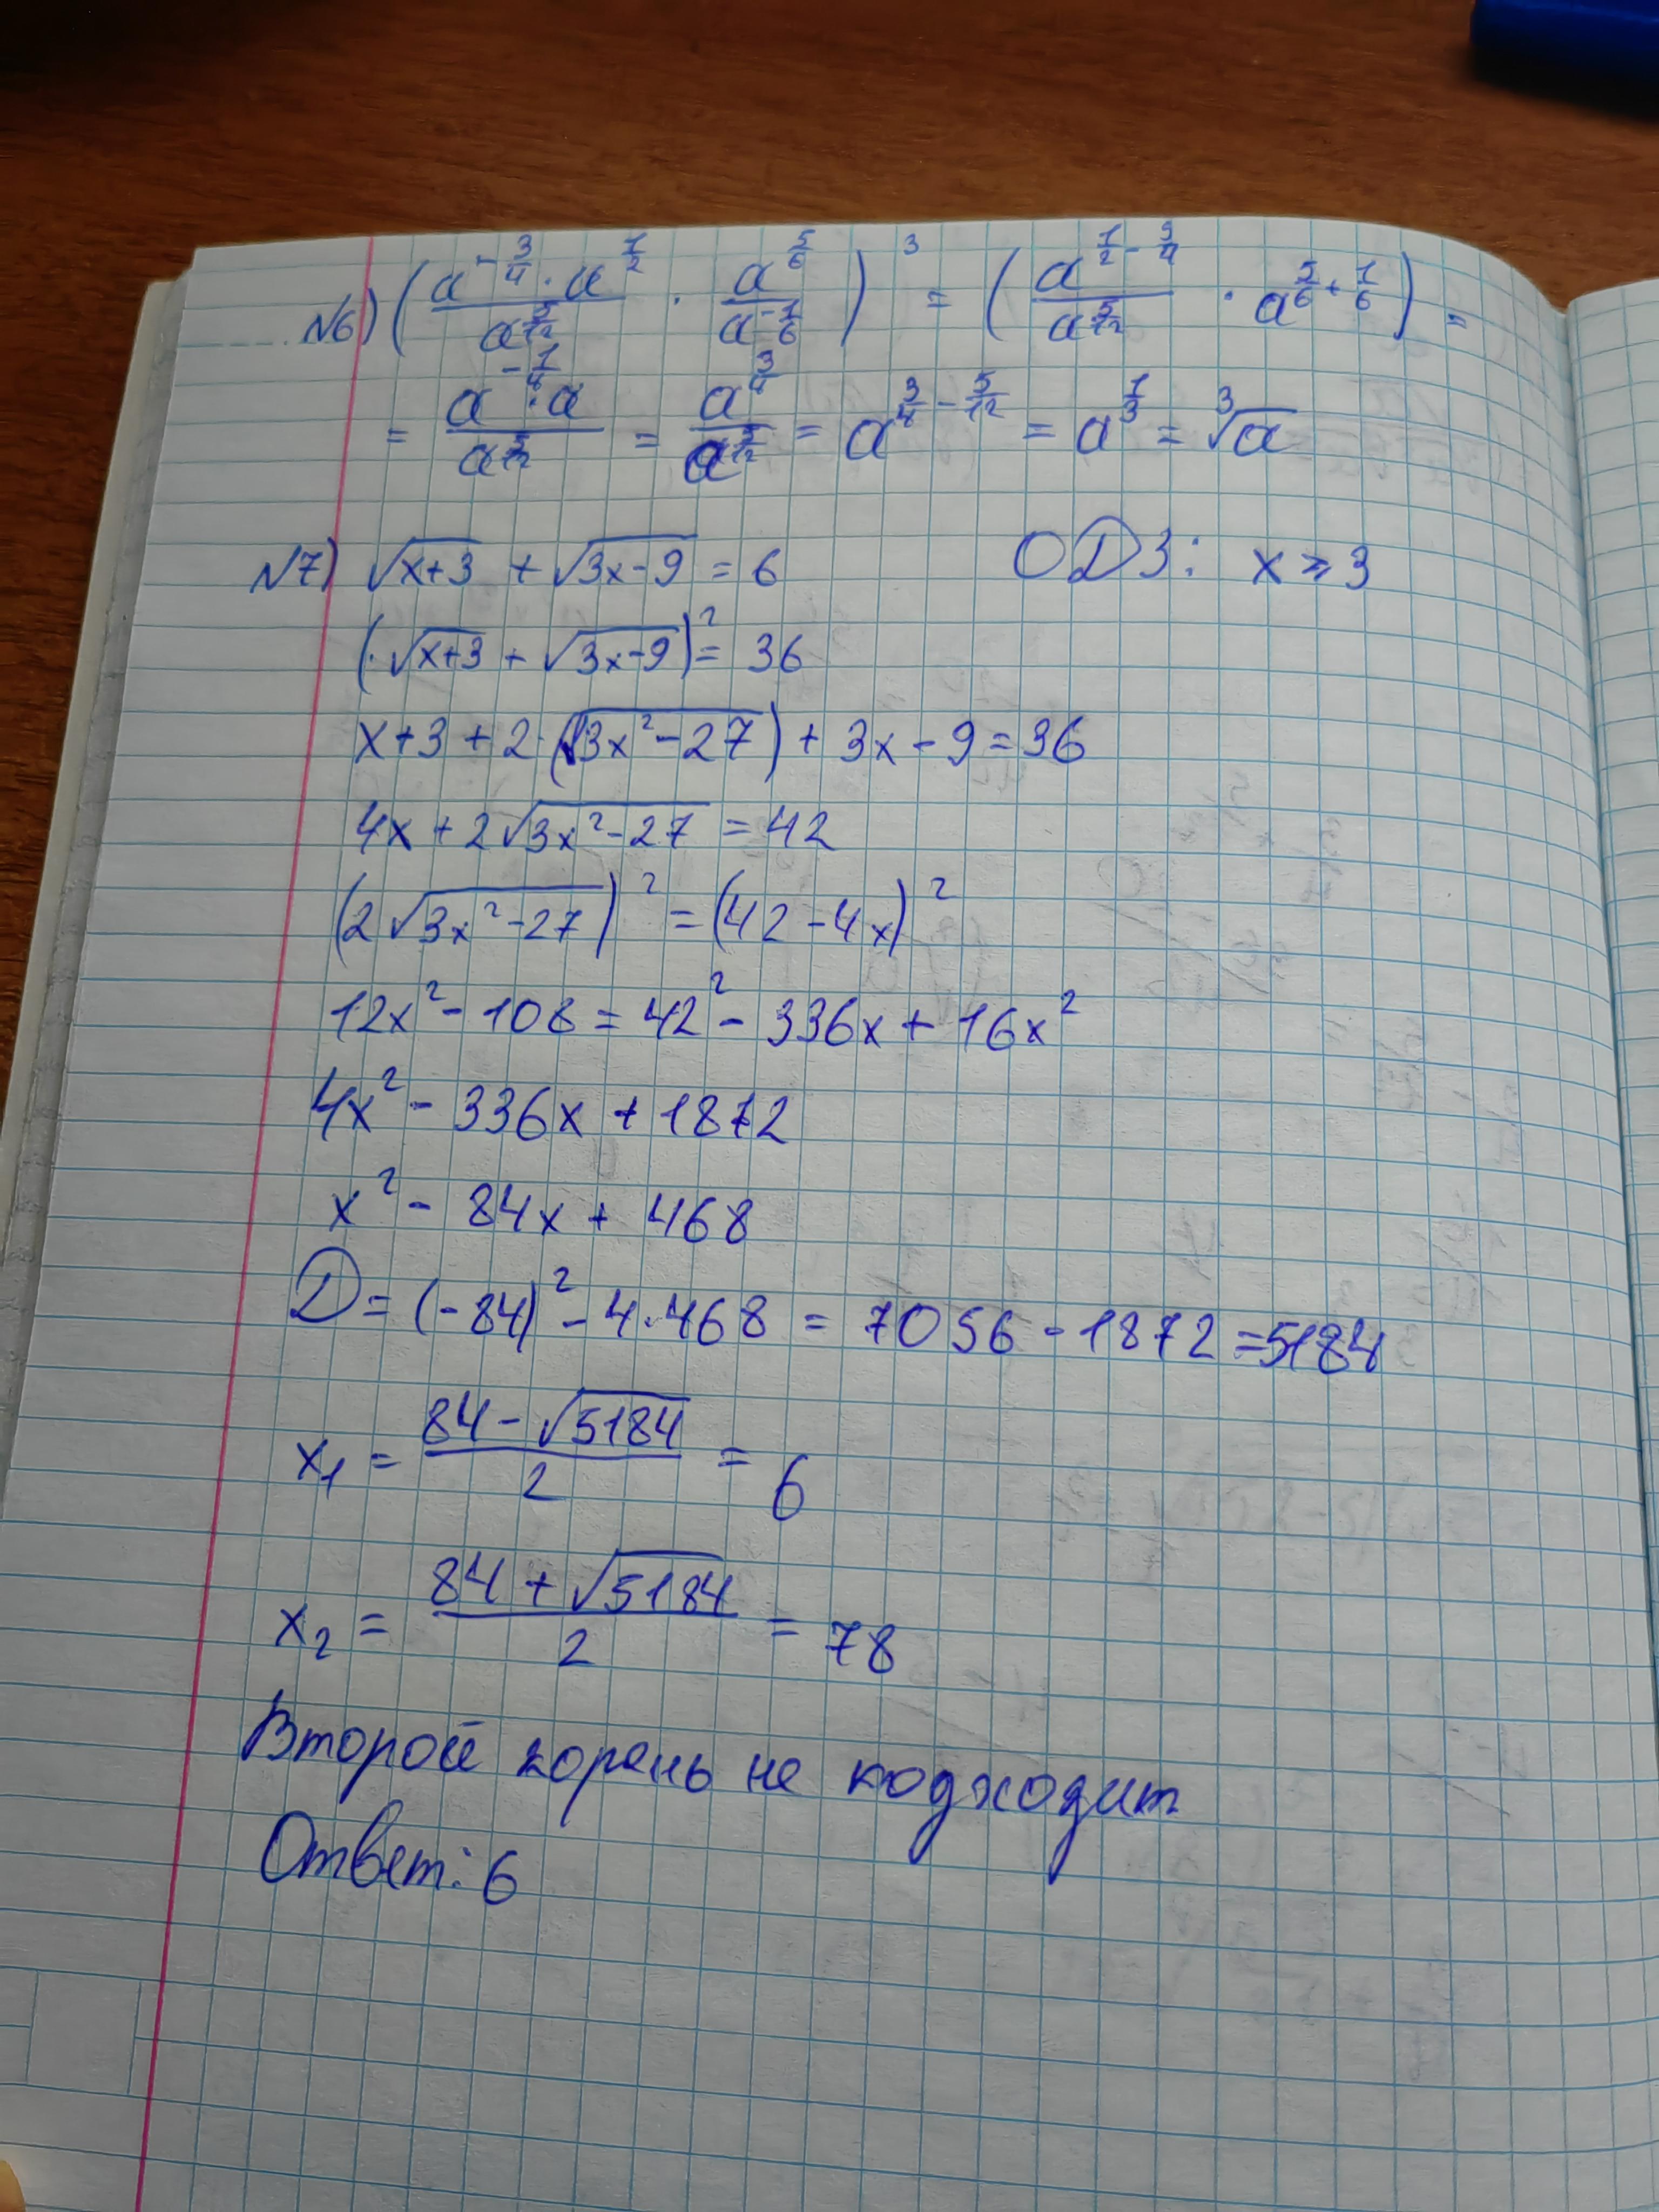 №6) (a^{-3/4} · a^{1/2} / a^{5/12} · a^{5/6} / a^{-1/6})^3 = (a^{1/2 - 3/4} / a^{5/12} · a^{5/6 + 1/6}) =
= a^{-1/4} · a / a^{5/12} = a^{3/4} / a^{5/12} = a^{3/4 - 5/12} = a^{1/3} = ∛a
№7) √(x+3) + √(3x-9) = 6 ОДЗ: x ⩾ 3
(·√(x+3) + √(3x-9))² = 36
x+3 + 2·(√(3x²-27)) + 3x - 9 = 36
4x + 2√(3x²-27) = 42
(2√(3x²-27))² = (42-4x)²
12x² - 108 = 42² - 336x + 16x²
4x² - 336x + 1872
x² - 84x + 468
D = (-84)² - 4·468 = 7056 - 1872 = 5184
x₁ = (84 - √5184) / 2 = 6
x₂ = (84 + √5184) / 2 = 78
Второй корень не подходит
Ответ: 6